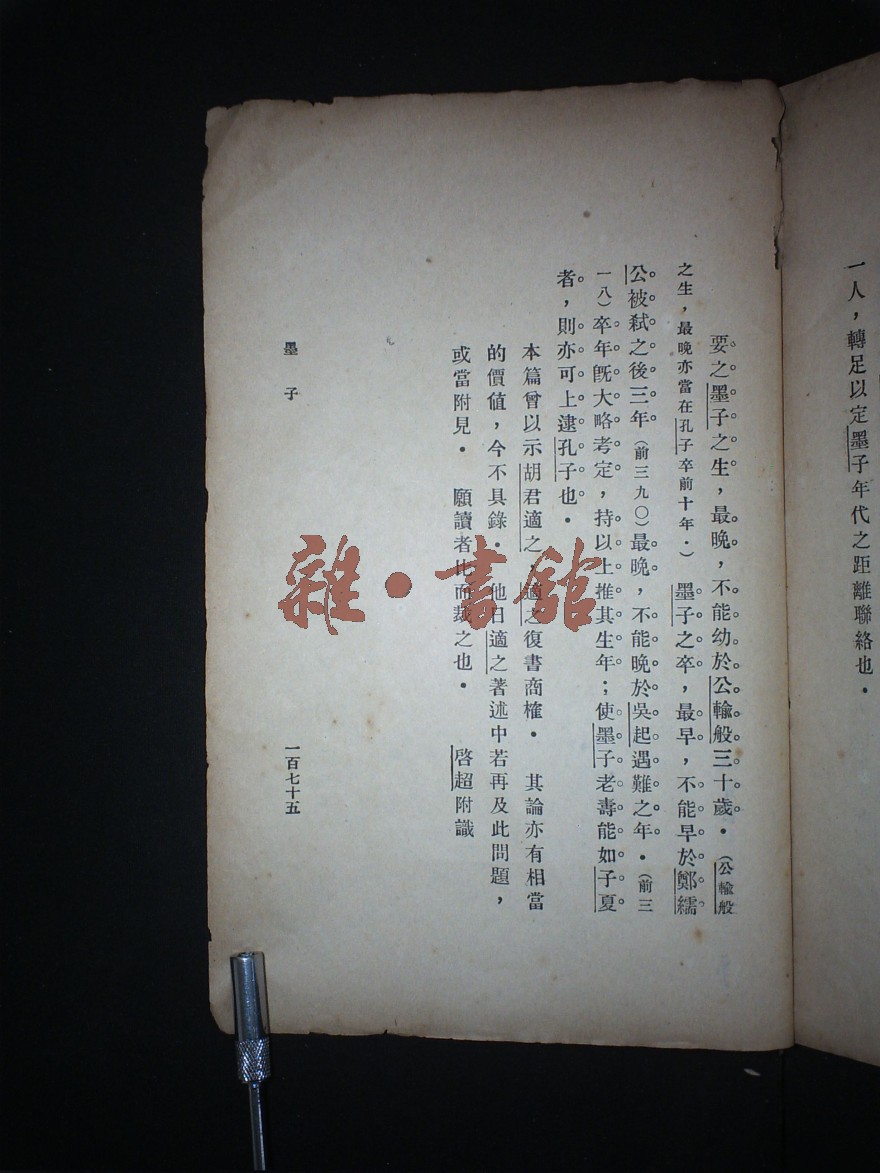 一人，轉足以定墨子年代之距離聯絡也．
要之墨子之生，最晚，不能幼於公輸般三十歲．（公輸般
之生，最晚亦當在孔子卒前十年．）墨子之卒，最早，不能早於鄭繻
公被弒之後三年（前三九〇）最晚，不能晚於吳起遇難之年．（前三
一八）卒年旣大略考定，持以上推其生年；使墨子老壽能如子夏
者，則亦可上逮孔子也．
本篇曾以示胡君適之，適之復書商榷．其論亦有相當
的價值，今不具錄．他日適之著述中若再及此問題，
或當附見．願讀者比而裁之也．啓超附識
墨子
一百七十五
雜·書館